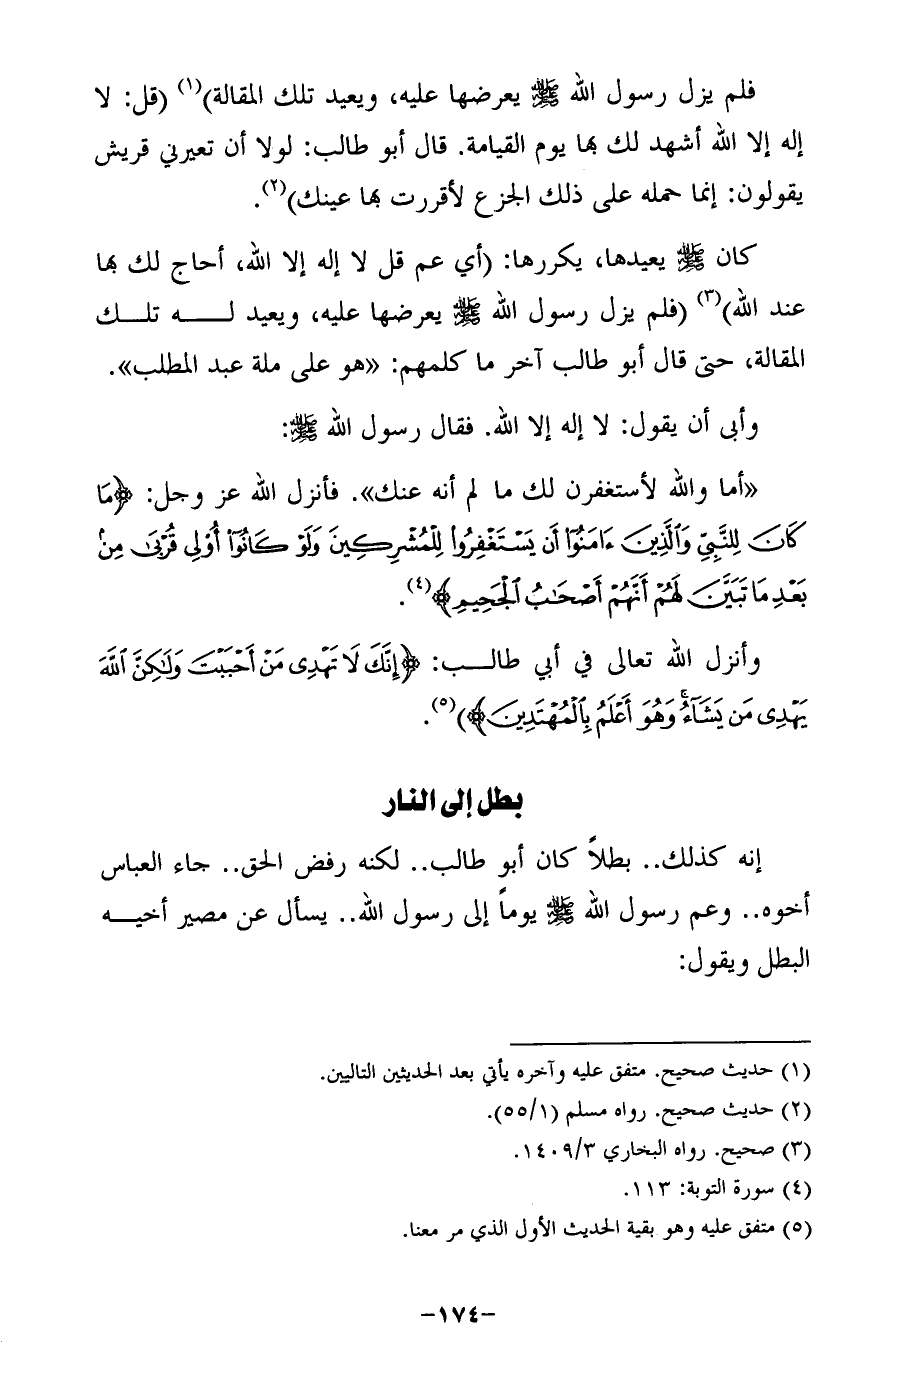 فلم يزل رسول الله ﷺ يعرضها عليه، ويعيد تلك المقالة)(١) (قل: لا
إله إلا الله أشهد لك بها يوم القيامة. قال أبو طالب: لولا أن تعيرني قريش
يقولون: إنما حمله على ذلك الجزع لأقررت بها عينك)(٢).
كان ﷺ يعيدها، يكررها: (أي عم قل لا إله إلا الله، أحاج لك بها
عند الله)(٣) (فلم يزل رسول الله ﷺ يعرضها عليه، ويعيد لـــه تلـــك
المقالة، حتى قال أبو طالب آخر ما كلمهم: «هو على ملة عبد المطلب».
وأبى أن يقول: لا إله إلا الله. فقال رسول الله ﷺ:
«أما والله لأستغفرن لك ما لم أنه عنك». فأنزل الله عز وجل: ﴿مَا
كَانَ لِلنَّبِيِّ وَٱلَّذِينَ ءَامَنُوٓاْ أَن يَسْتَغْفِرُواْ لِلْمُشْرِكِينَ وَلَوْ كَانُوٓاْ أُوْلِي قُرْبَىٰ مِنۢ
بَعْدِ مَا تَبَيَّنَ لَهُمْ أَنَّهُمْ أَصْحَٰبُ ٱلْجَحِيمِ﴾(٤).
وأنزل الله تعالى في أبي طالـــب: ﴿إِنَّكَ لَا تَهْدِى مَنْ أَحْبَبْتَ وَلَٰكِنَّ ٱللَّهَ
يَهْدِى مَن يَشَآءُ ۚ وَهُوَ أَعْلَمُ بِٱلْمُهْتَدِينَ﴾)(٥).
بطل إلى النار
إنه كذلك.. بطلاً كان أبو طالب.. لكنه رفض الحق.. جاء العباس
أخوه.. وعم رسول الله ﷺ يوماً إلى رسول الله.. يسأل عن مصير أخيـــه
البطل ويقول:
(١) حديث صحيح. متفق عليه وآخره يأتي بعد الحديثين التاليين.
(٢) حديث صحيح. رواه مسلم (٥٥/١).
(٣) صحيح. رواه البخاري ١٤٠٩/٣.
(٤) سورة التوبة: ١١٣.
(٥) متفق عليه وهو بقية الحديث الأول الذي مر معنا.
-١٧٤-